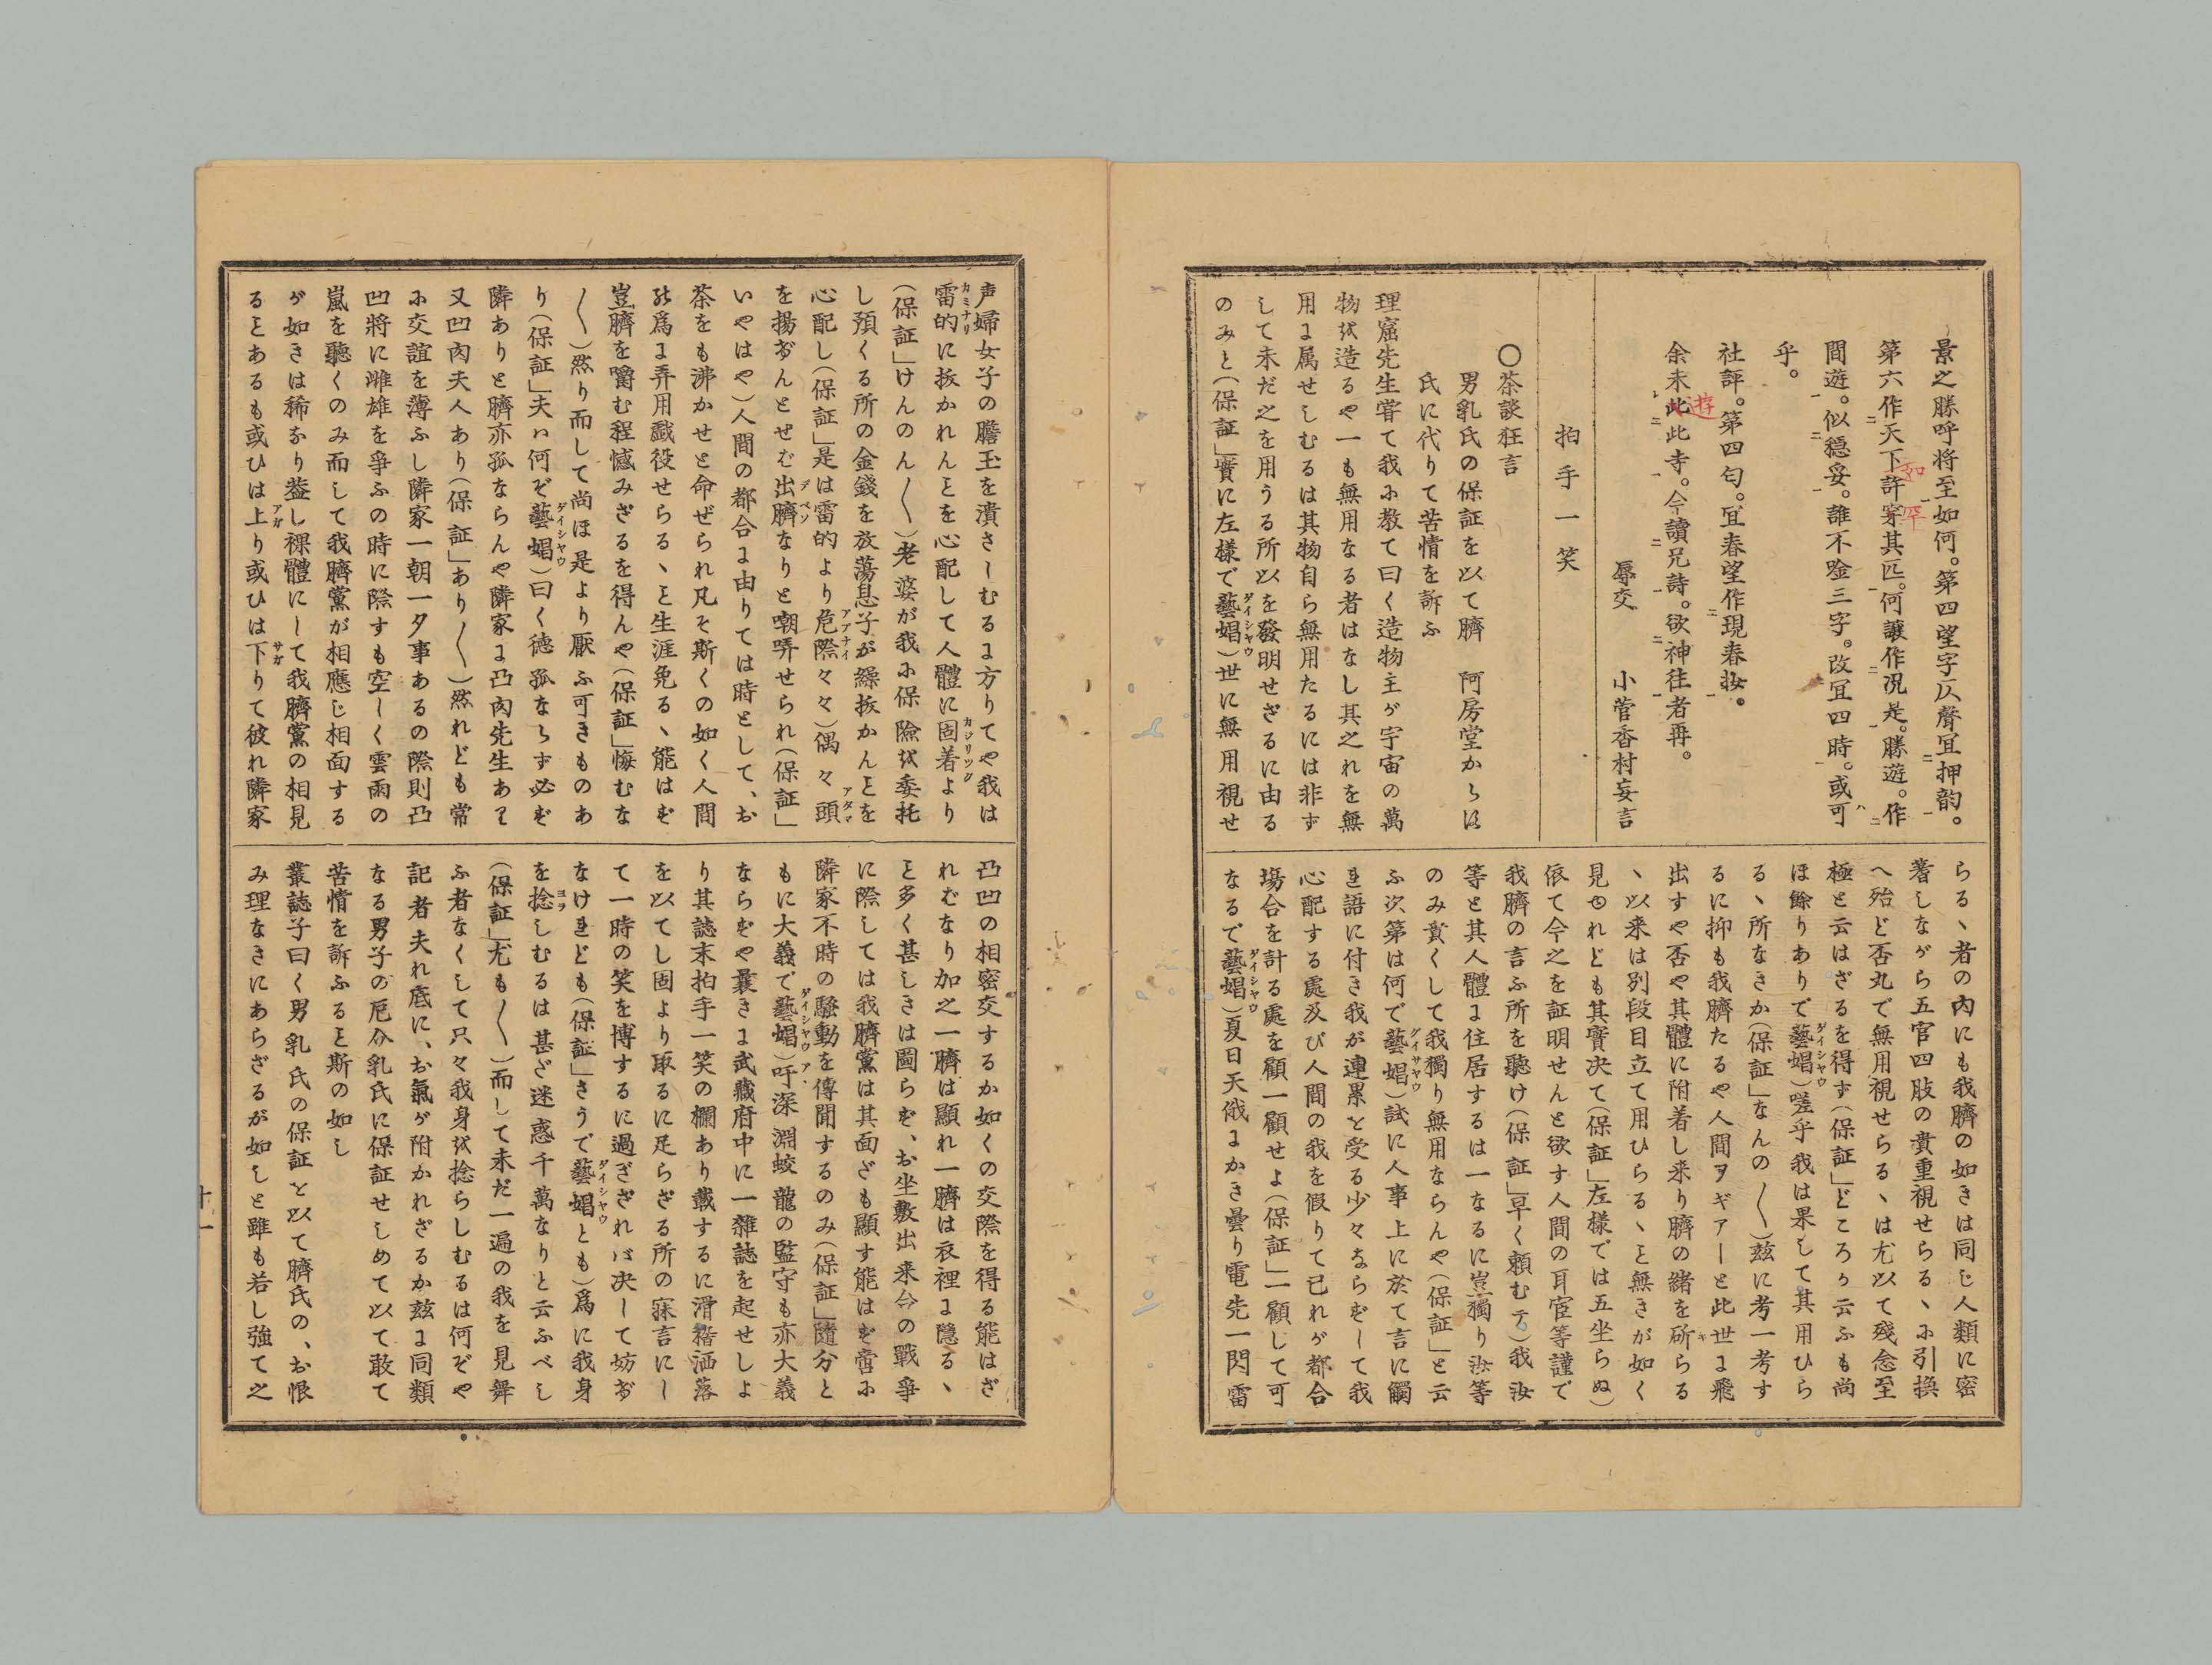 景之勝呼将至如何。第四望字仄聲宜押韵。
第六作天下許穿其匹。何讓作況是。勝遊。作
間遊。似穏妥。誰不唫三字。改宜四時。或可
乎。
社評。第四句。宜春望作現春妝。
余未此此寺。今讀兄詩。欲神往者再。
遊
如
罕
辱交　小菅香村妄言
拍手一笑
〇茶談狂言
男乳氏の保証を以て臍　阿房堂からは
氏に代りて苦情を訴ふ
理窟先生甞て我に教て曰く造物主が宇宙の萬
物を造るや一も無用なる者はなし其之れを無
用に属せしむるは其物自ら無用たるには非ず
して未だ之を用うる所以を發明せざるに由る
のみと（保証」實に左様で藝娼）世に無用視せ
らるゝ者の内にも我臍の如きは同じ人類に密
着しながら五官四肢の貴重視せらるゝに引換
へ殆ど否丸で無用視せらるゝは尤以て殘念至
極と云はざるを得ず（保証」どころか云ふも尚
ほ餘りありで藝娼）嗟乎我は果して其用ひら
るゝ所なきか（保証」なんの〳〵）茲に考一考す
るに抑も我臍たるや人間ヲギアーと此世に飛
出すや否や其體に附着し来り臍の緒を斫らる
ゝ以来は別段目立て用ひらるゝこと無きが如く
見ゆれども其實决て（保証」左様では五坐らぬ）
依て今之を証明せんと欲す人間の耳官等謹で
我臍の言ふ所を聽け（保証」早く頼むデ）我汝
等と其人體に住居するは一なるに豈獨り汝等
のみ貴くして我獨り無用ならんや（保証」と云
ふ次第は何で藝娼）試に人事上に於て言に觸
れ語に付き我が連累を受る少々ならずして我
心配する處及び人間の我を假りて己れが都合
塲合を計る處を顧一顧せよ（保証」一顧して可
なるで藝娼）夏日天俄にかき曇り電先一閃雷
声婦女子の膽玉を潰さしむるに方りてや我は
雷的に抜かれんことを心配して人體に固着より
（保証」けんのん〳〵）老婆が我に保險を委托
し預くる所の金錢を放蕩息子が繰抜かんことを
心配し（保証」是は雷的より危際々々）偶々頭
を揚げんとせば出臍なりと嘲弄せられ（保証」
いやはや）人間の都合に由りては時として、お
茶をも沸かせと命ぜられ凡そ斯くの如く人間
の爲に弄用戯役せらるゝこと生涯免るゝ能はず
豈臍を嚼む程憾みざるを得んや（保証」悔むな
〳〵）然り而して尚ほ是より厭ふ可きものあ
り（保証」夫ハ何ぞ藝娼）曰く徳孤ならず必ず
隣ありと臍亦孤ならんや隣家に凸内先生あり
又凹内夫人あり（保証」あり〳〵）然れども常
に交誼を薄ふし隣家一朝一夕事あるの際則凸
凹將に雌雄を爭ふの時に際すも空しく雲雨の
嵐を聽くのみ而して我臍黨が相應じ相面する
が如きは稀なり蓋し裸體にして我臍黨の相見
ることあるも或ひは上り或ひは下りて彼れ隣家
凸凹の相密交するか如くの交際を得る能はざ
ればなり加之一臍は顯れ一臍は衣裡に隠るゝ
こと多く甚しきは圖らず、お坐敷出来合の戰爭
に際しては我臍黨は其面ざも顯す能はず啻に
隣家不時の騷動を傳聞するのみ（保証」隨分と
もに大義で藝娼）吁深淵蛟龍の監守も亦大義
ならずや曩きに武藏府中に一雜誌を起せしよ
り其誌末拍手一笑の欄あり載するに滑稽洒落
を以てし固より取るに足らざる所の寐言にし
て一時の笑を博するに過ぎざれバ决して妨げ
なけれども（保証」さうで藝娼とも）爲に我身
を捻しむるは甚ざ迷惑千萬なりと云ふべし
（保証」尤も〳〵）而して未だ一遍の我を見舞
ふ者なくして只々我身を捻らしむるは何ぞや
記者夫れ底に、お氣が附かれざるか茲に同類
なる男子の厄介乳氏に保証せしめて以て敢て
苦情を訴ふること斯の如し
叢誌子曰く男乳氏の保証を以て臍氏の、お恨
み理なきにあらざるが如しと雖も若し強て之
十一